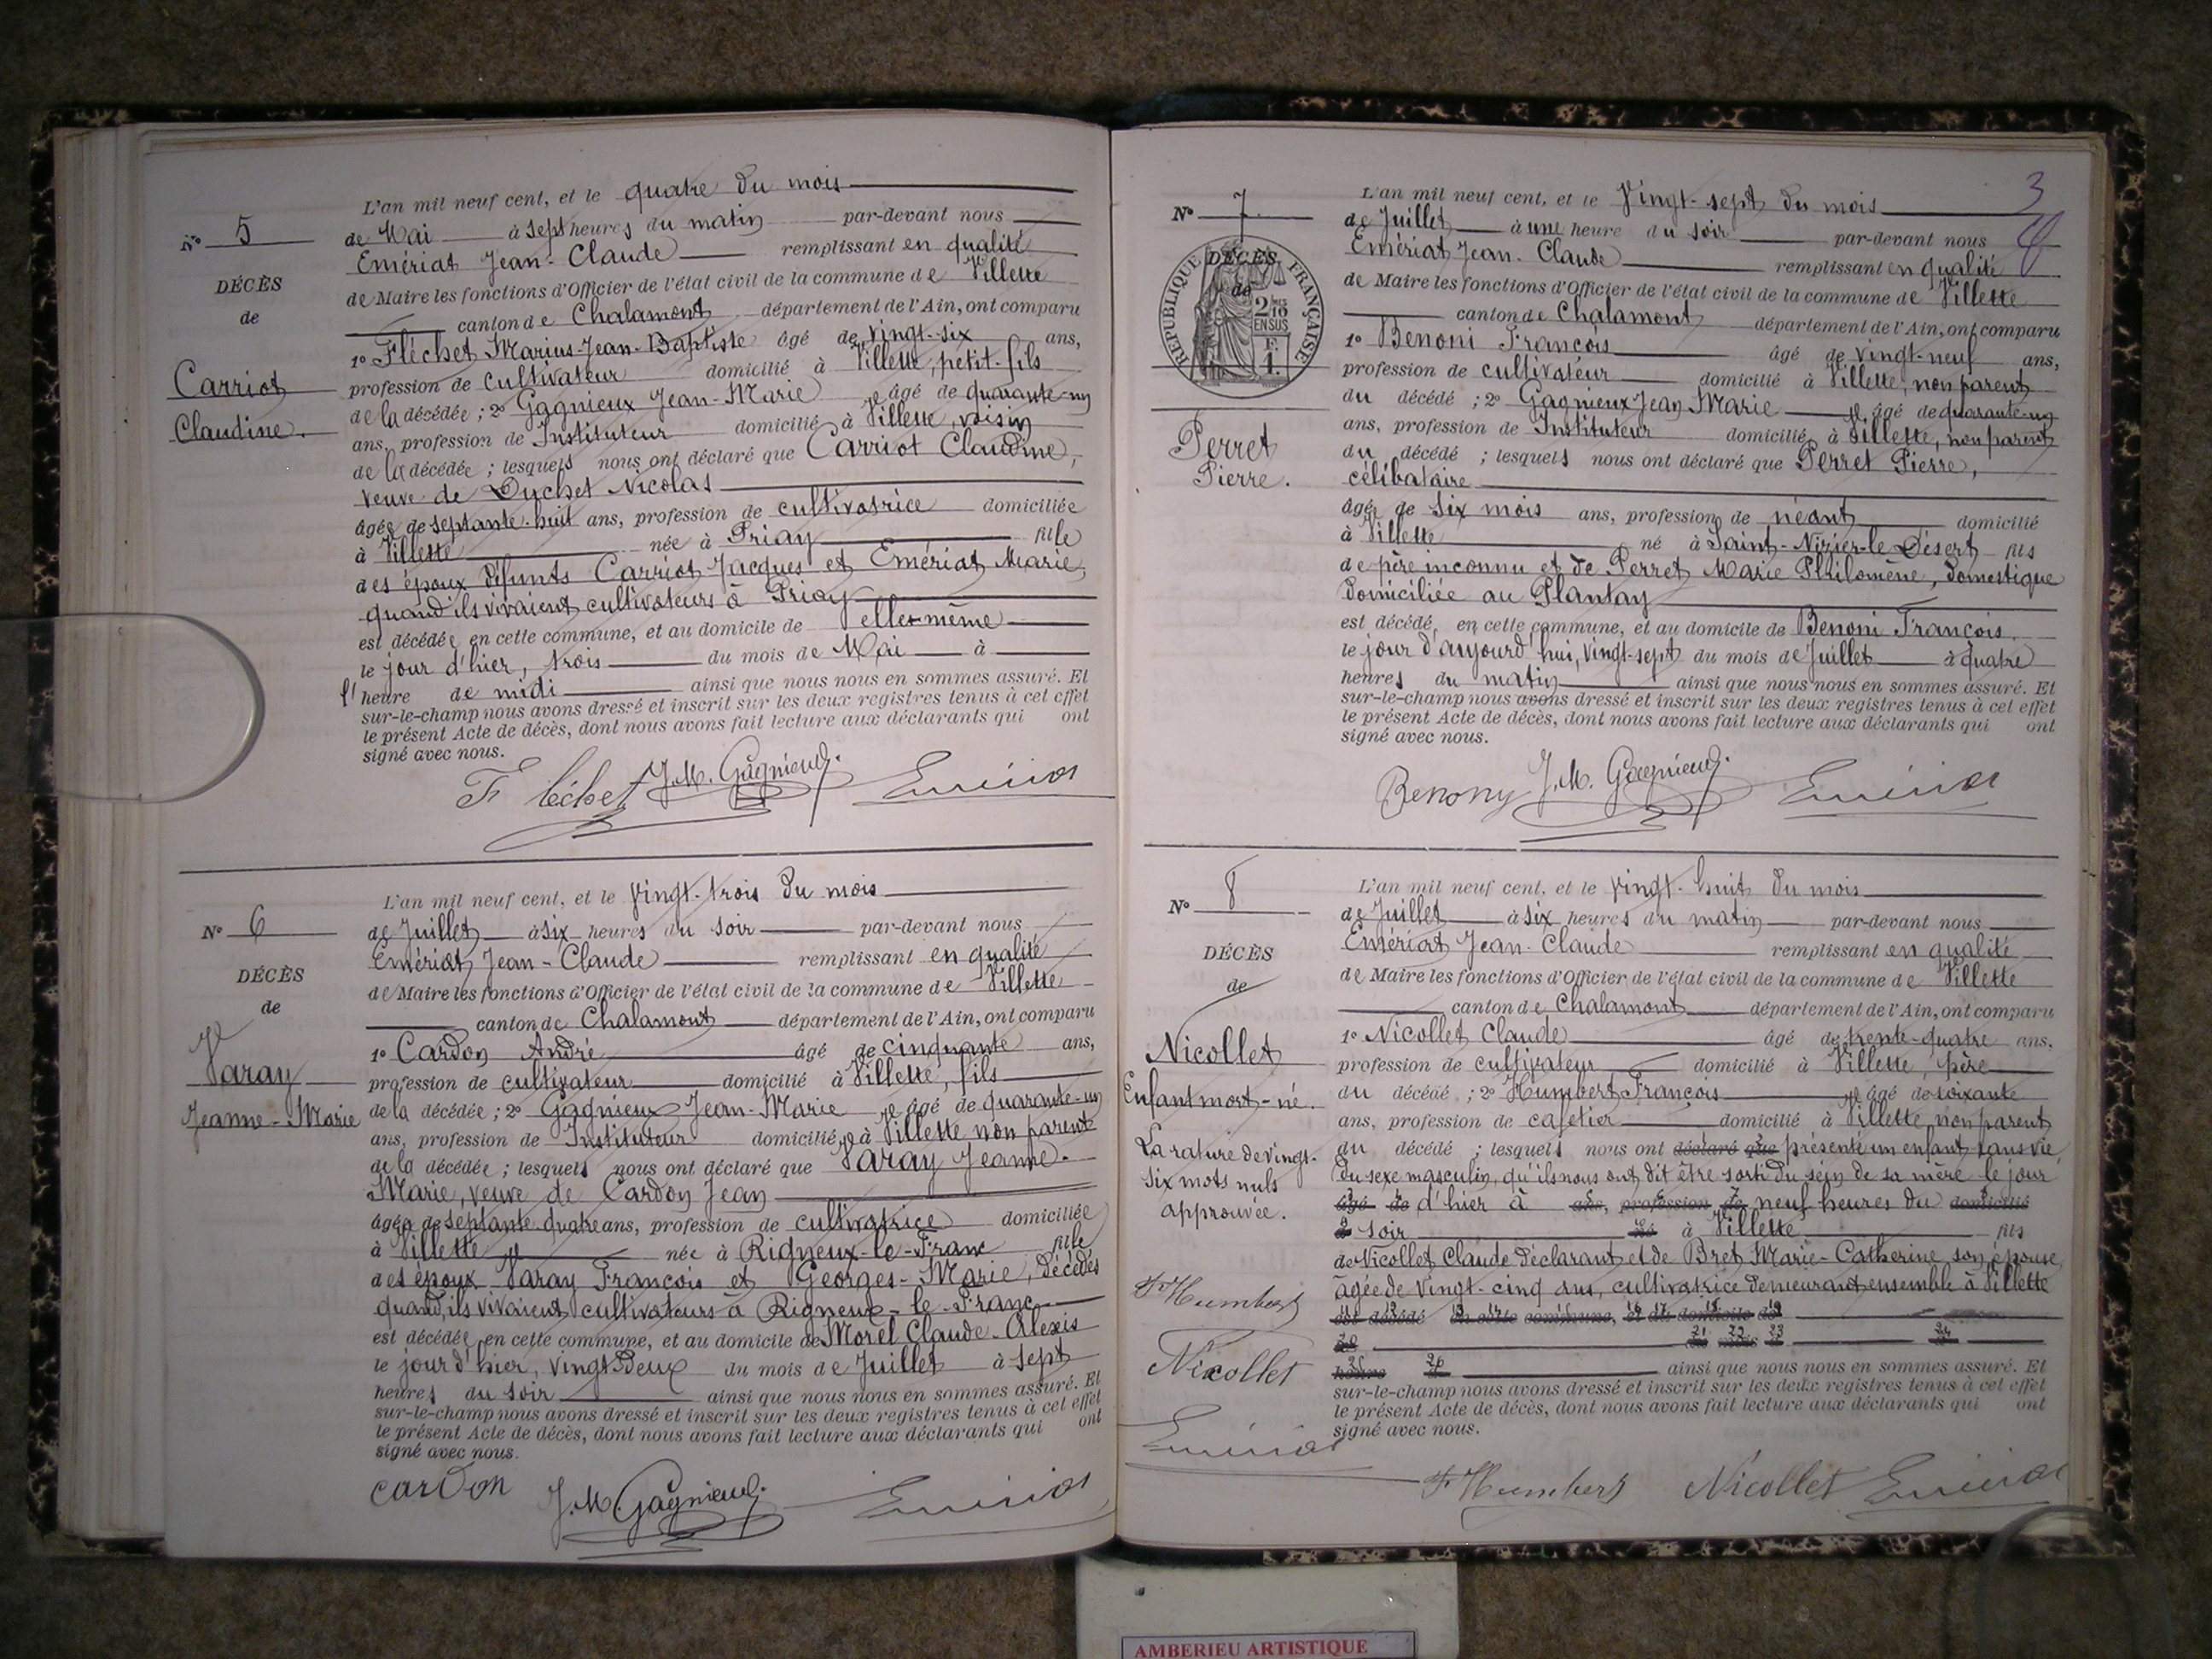 L'an mil neuf cent, et le quatre du mois
No 5
de Mai à sept heures du matin par-devant nous
Emériat Jean-Claude remplissant en qualité
DÉCÈS
de Maire les fonctions d'Officier de l'état civil de la commune de Villette
de
canton de Chalamont département de l'Ain, ont comparu
1o Fléchet Marius-Jean-Baptiste âgé de vingt-six ans,
Carriot
profession de cultivateur domicilié à Villette, petit-fils
de la décédée ; 2o Gagnieux Jean-Marie âgé de quarante-un
Claudine.
ans, profession de Instituteur domicilié à Villette, voisin
de la décédée ; lesquels nous ont déclaré que Carriot Claudine,
veuve de Duchet Nicolas
âgée de septante-huit ans, profession de cultivatrice domiciliée
à Villette née à Priay fille
des époux défunts Carriot Jacques et Emériat Marie,
quand ils vivaient cultivateurs à Priay
est décédée en cette commune, et au domicile de elle-même
le jour d'hier, trois du mois de Mai à
l'heure de midi ainsi que nous nous en sommes assuré. Et
sur-le-champ nous avons dressé et inscrit sur les deux registres tenus à cet effet
le présent Acte de décès, dont nous avons fait lecture aux déclarants qui ont
signé avec nous.
Fléchet J.M. Gagnieux. Emériat
L'an mil neuf cent, et le vingt-trois du mois
No 6
de Juillet à six heures du soir par-devant nous
Emériat Jean-Claude remplissant en qualité
DÉCÈS
de Maire les fonctions d'Officier de l'état civil de la commune de Villette
de
canton de Chalamont département de l'Ain, ont comparu
1o Cardon André âgé de cinquante ans,
Varay
profession de cultivateur domicilié à Villette, fils
Jeanne-Marie
de la décédée ; 2o Gagnieux Jean-Marie âgé de quarante-un
ans, profession de Instituteur domicilié à Villette non parent
de la décédée ; lesquels nous ont déclaré que Varay Jeanne-
Marie, veuve de Cardon Jean
âgée de septante quatre ans, profession de cultivatrice domiciliée
à Villette née à Rigneux-le-Franc fille
des époux Varay François et Georges-Marie, décédés
quand ils vivaient cultivateurs à Rigneux-le-Franc
est décédée en cette commune, et au domicile de Morel Claude-Alexis
le jour d'hier, vingt-deux du mois de Juillet à sept
heures du soir ainsi que nous nous en sommes assuré. Et
sur-le-champ nous avons dressé et inscrit sur les deux registres tenus à cet effet
le présent Acte de décès, dont nous avons fait lecture aux déclarants qui ont
signé avec nous.
Cardon J.M. Gagnieux. Emériat
3
L'an mil neuf cent, et le vingt-sept du mois
No 7
de Juillet à une heure du soir par-devant nous
Emériat Jean-Claude remplissant en qualité
DÉCÈS
de
RÉPUBLIQUE FRANÇAISE
2/10 EN SUS
F. 1.
de Maire les fonctions d'Officier de l'état civil de la commune de Villette
canton de Chalamont département de l'Ain, ont comparu
1o Benoni François âgé de vingt-neuf ans,
profession de cultivateur domicilié à Villette, non parent
du décédé ; 2o Gagnieux Jean Marie âgé de quarante-un
Perret
ans, profession de Instituteur domicilié à Villette, non parent
du décédé ; lesquels nous ont déclaré que Perret Pierre,
Pierre.
célibataire
âgé de six mois ans, profession de néant domicilié
à Villette né à Saint-Nizier-le Désert fils
de père inconnu et de Perret Marie Philomène, domestique
domiciliée au Plantay
est décédé, en cette commune, et au domicile de Benoni François
le jour d'aujourd'hui, vingt-sept du mois de Juillet à quatre
heures du matin ainsi que nous nous en sommes assuré. Et
sur-le-champ nous avons dressé et inscrit sur les deux registres tenus à cet effet
le présent Acte de décès, dont nous avons fait lecture aux déclarants qui ont
signé avec nous.
Benony J.M. Gagnieux. Emériat
L'an mil neuf cent, et le vingt-huit du mois
No 8
de Juillet à six heures du matin par-devant nous
Emériat Jean-Claude remplissant en qualité
DÉCÈS
de Maire les fonctions d'Officier de l'état civil de la commune de Villette
de
canton de Chalamont département de l'Ain, ont comparu
1o Nicollet Claude âgé de trente-quatre ans,
Nicollet
profession de cultivateur domicilié à Villette, père
Enfant mort-né.
du décédé ; 2o Humbert François âgé de soixante
ans, profession de cafetier domicilié à Villette non parent
La rature de vingt-
six mots nuls
approuvée.
du décédé ; lesquels nous ont déclaré que présenté un enfant sans vie
du sexe masculin, qu'ils nous ont dit être sorti du sein de sa mère le jour
âgé de d'hier à ans, profession de neuf heures du domicilié
à soir né à Villette fils
de Nicollet Claude déclarant et de Bret Marie-Catherine son épouse
âgée de vingt-cinq ans, cultivatrice demeurant ensemble à Villette
est décédé en cette commune, et au domicile de
ainsi que nous nous en sommes assuré. Et
sur-le-champ nous avons dressé et inscrit sur les deux registres tenus à cet effet
le présent Acte de décès, dont nous avons fait lecture aux déclarants qui ont
signé avec nous.
Fs Humbert
Nicollet
Emériat
Fs Humbert Nicollet Emériat
AMBERIEU ARTISTIQUE